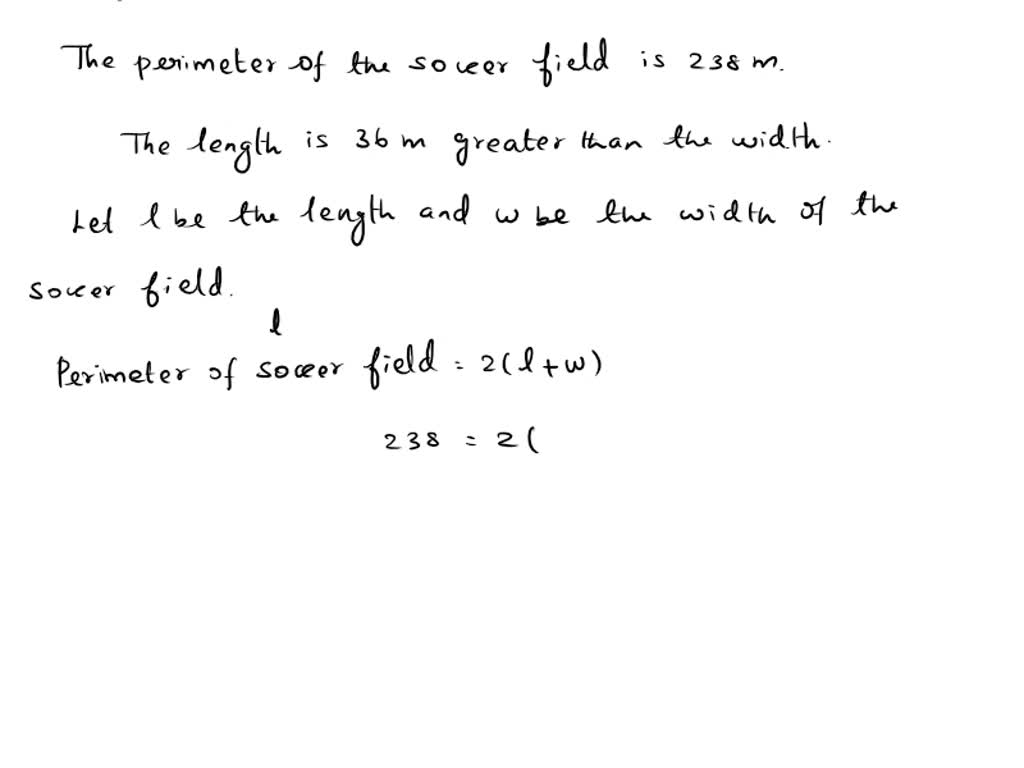 The perimeter of the soccer field is 238 m.
The length is 36 m greater than the width.
Let l be the length and w be the width of the
soccer field.
l
Perimeter of soccer field = 2(l+w)
238 = 2(